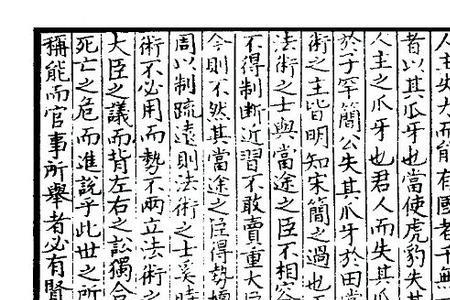 人主失力而能有國者千無
者以其爪牙也當使虎豹失其
人主之爪牙也君人而失其
於子罕簡公失其爪牙於田常
術之主皆明知宋簡之過也
法術之士與當途之臣不相容
不得制斷近習不敢賣重大臣
今則不然其當途之臣得勢擅
周以制疏遠則法術之士奚時
術不必用而勢不兩立法術之
大臣之議而背左右之訟獨合
死亡之危而進說乎此世之所
稱能而官事所舉者必有賢